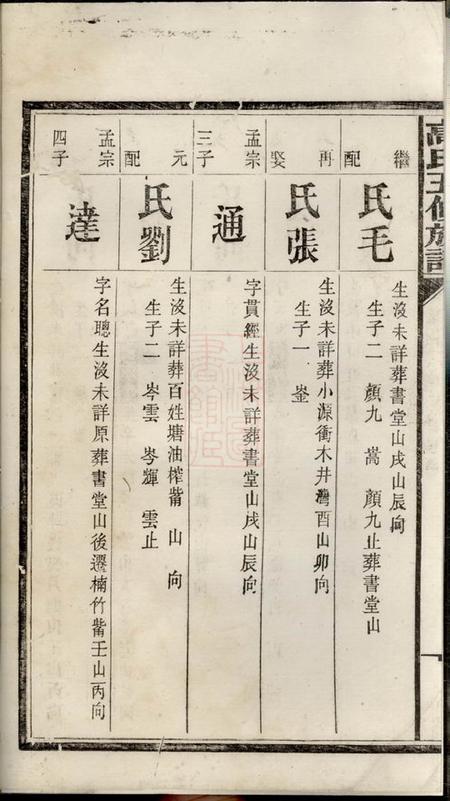 高氏五修族譜
繼配
毛氏
生沒未詳葬書堂山戌山辰向
生子二 顏九 嵩 顏九止葬書堂山
再娶
張氏
生沒未詳葬小源衝木井灣酉山卯向
生子一 崟
孟宗三子
通
字貫經生沒未詳葬書堂山戌山辰向
元配
劉氏
生沒未詳葬百姓塘油榨觜 山 向
生子二 岑雲 岑輝 雲止
孟宗四子
達
字名聰生沒未詳原葬書堂山後遷楠竹觜壬山丙向